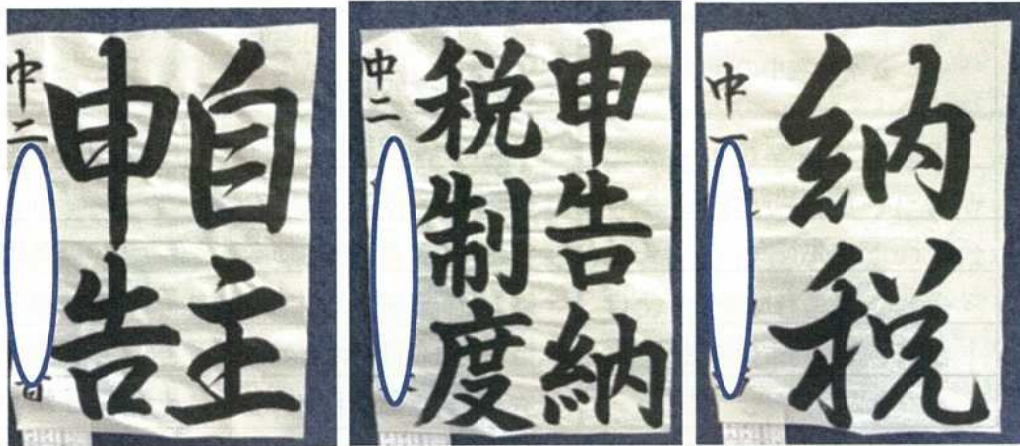 自主
申告
中二
申告納
税制度
中二
納
税
中一